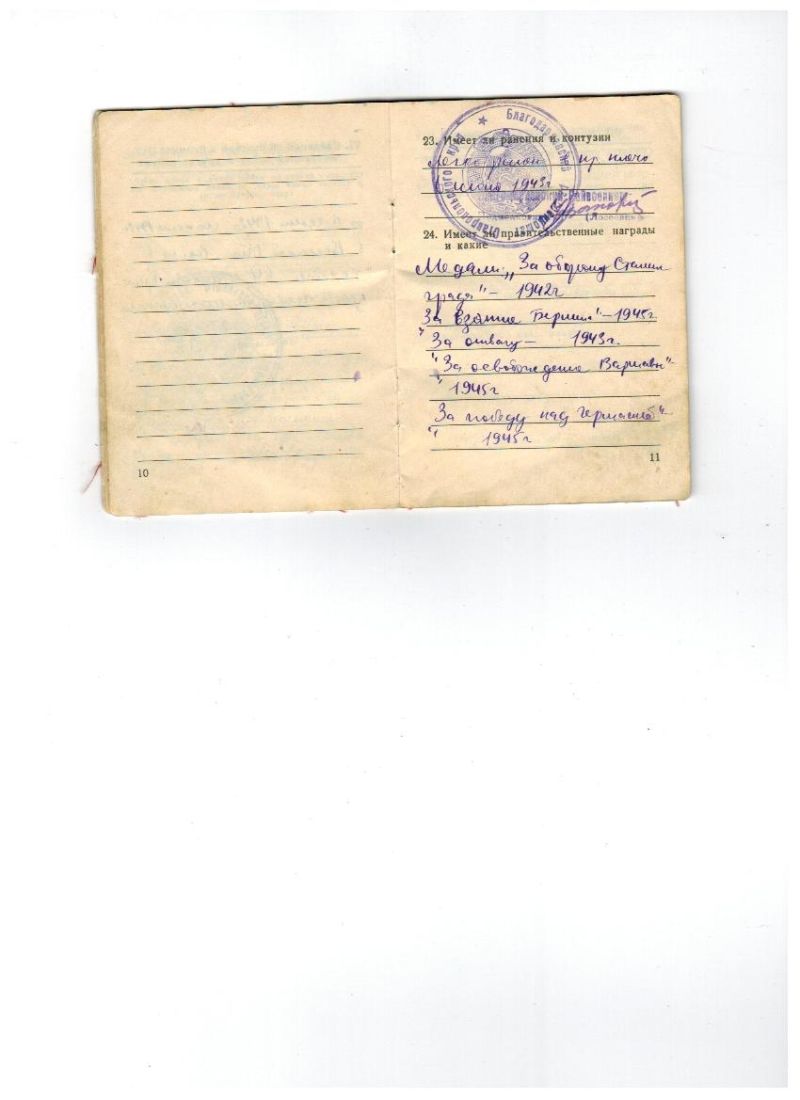 10
23. Имеет ли ранения и контузии
Легко ранен пр плечо
1943г
24. Имеет ли правительственные награды
и какие
Медали: „За оборону Сталин
града" – 1942г
За взятие Берлина" – 1945г.
"За отвагу – 1943г.
"За освобождение Варшавы"
1945г
"За победу над Германией"
1945г
11
Благодар
Ставропольского края